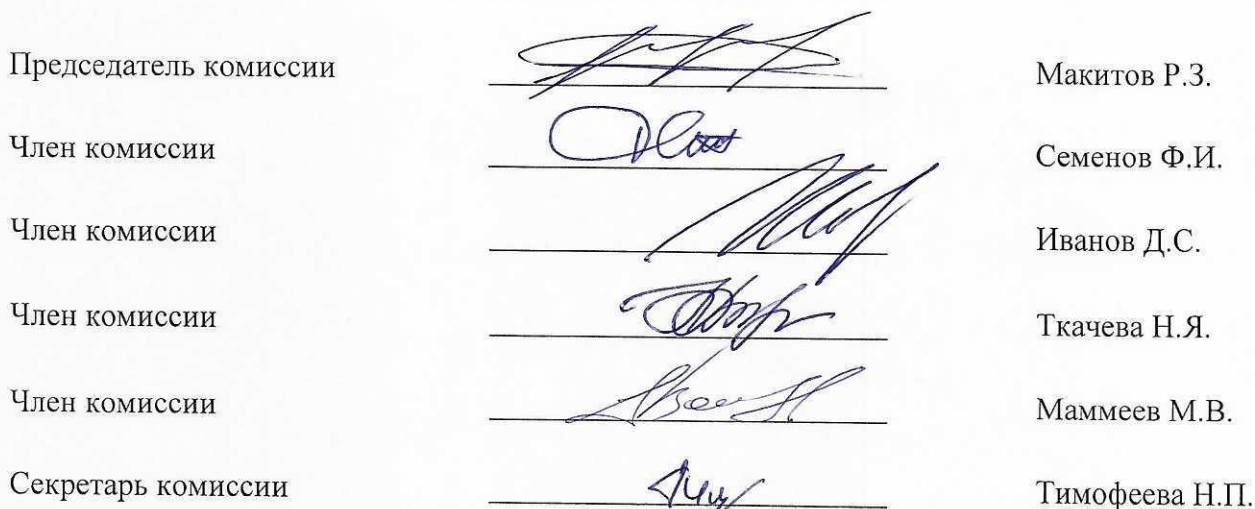 Председатель комиссии Макитов Р.З.
Член комиссии Семенов Ф.И.
Член комиссии Иванов Д.С.
Член комиссии Ткачева Н.Я.
Член комиссии Маммеев М.В.
Секретарь комиссии Тимофеева Н.П.